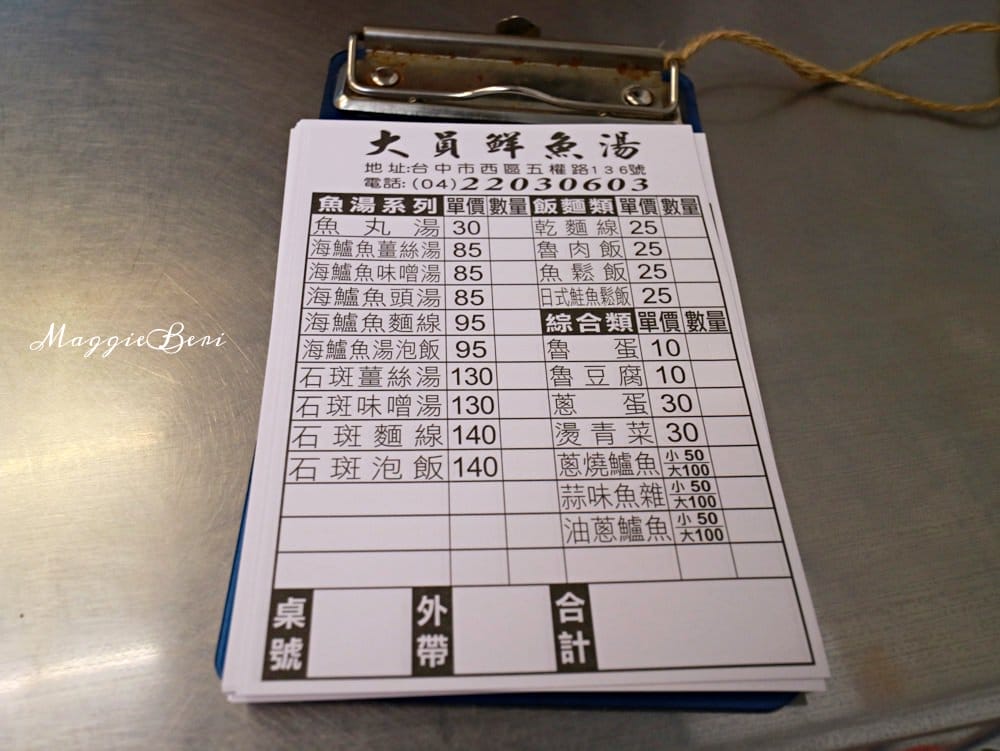 大員鮮魚湯
地址:台中市西區五權路136號
電話:(04)22030603
魚湯系列 單價 數量 飯麵類 單價 數量
魚丸湯 30 乾麵線 25
海鱸魚薑絲湯 85 魯肉飯 25
海鱸魚味噌湯 85 魚鬆飯 25
海鱸魚頭湯 85 日式鮭魚鬆飯 25
海鱸魚麵線 95 綜合類 單價 數量
海鱸魚湯泡飯 95 魯蛋 10
石斑薑絲湯 130 魯豆腐 10
石斑味噌湯 130 蔥蛋 30
石斑麵線 140 燙青菜 30
石斑泡飯 140 蔥燒鱸魚 小50 大100
蒜味魚雜 小50 大100
油蔥鱸魚 小50 大100
桌號 外帶 合計
MaggieBeri